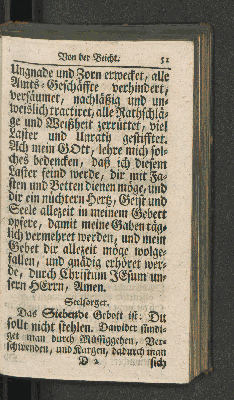 Von der Beicht. 51
Ungnade und Zorn erwecket, alle
Amts-Geschäffte verhindert,
versäumet, nachläßig und un-
weislich tractiret, alle Rathschlä-
ge und Weißheit zerrüttet, viel
Laster und Unrath gestifftet.
Ach mein GOtt, lehre mich sol-
ches bedencken, daß ich diesem
Laster feind werde, dir mit Fa-
sten und Betten dienen möge, und
dir ein nüchtern Hertz, Geist und
Seele allezeit in meinem Gebett
opfere, damit meine Gaben täg-
lich vermehret werden, und mein
Gebet dir allezeit möge wolge-
fallen, und gnädig erhöret wer-
de, durch Christum JEsum un-
sern HErrn, Amen.
Seelsorger.
Das Siebende Gebott ist: Du
sollt nicht stehlen. Dawider sündi-
get man durch Müssiggehen, Ver-
schwenden, und Kargen, dadurch man
D 2 sich